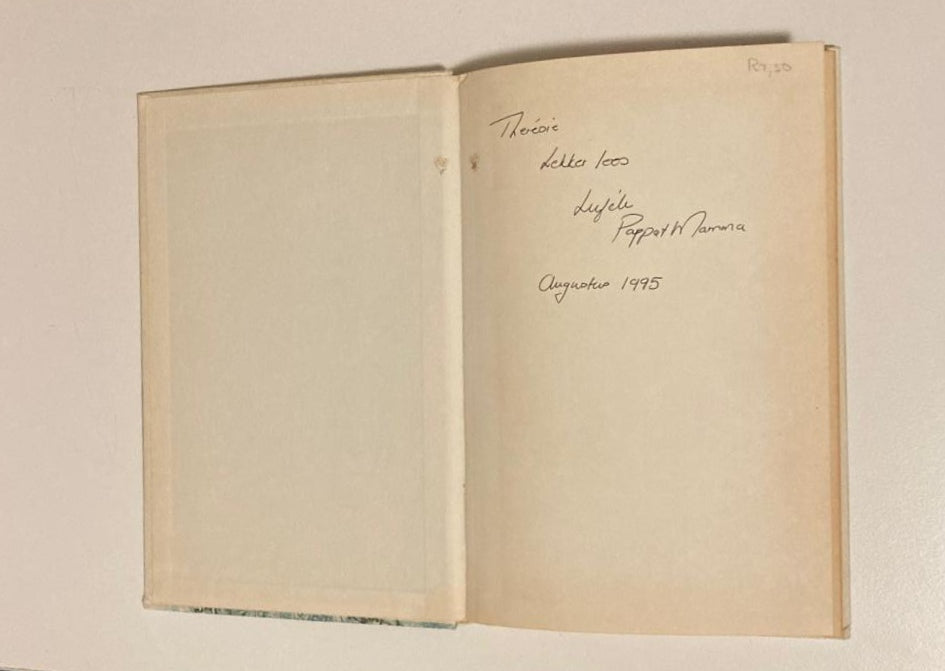 R7,50
Therésie
Lekker lees
Liefde
Pappa + Mamma
Augustus 1995